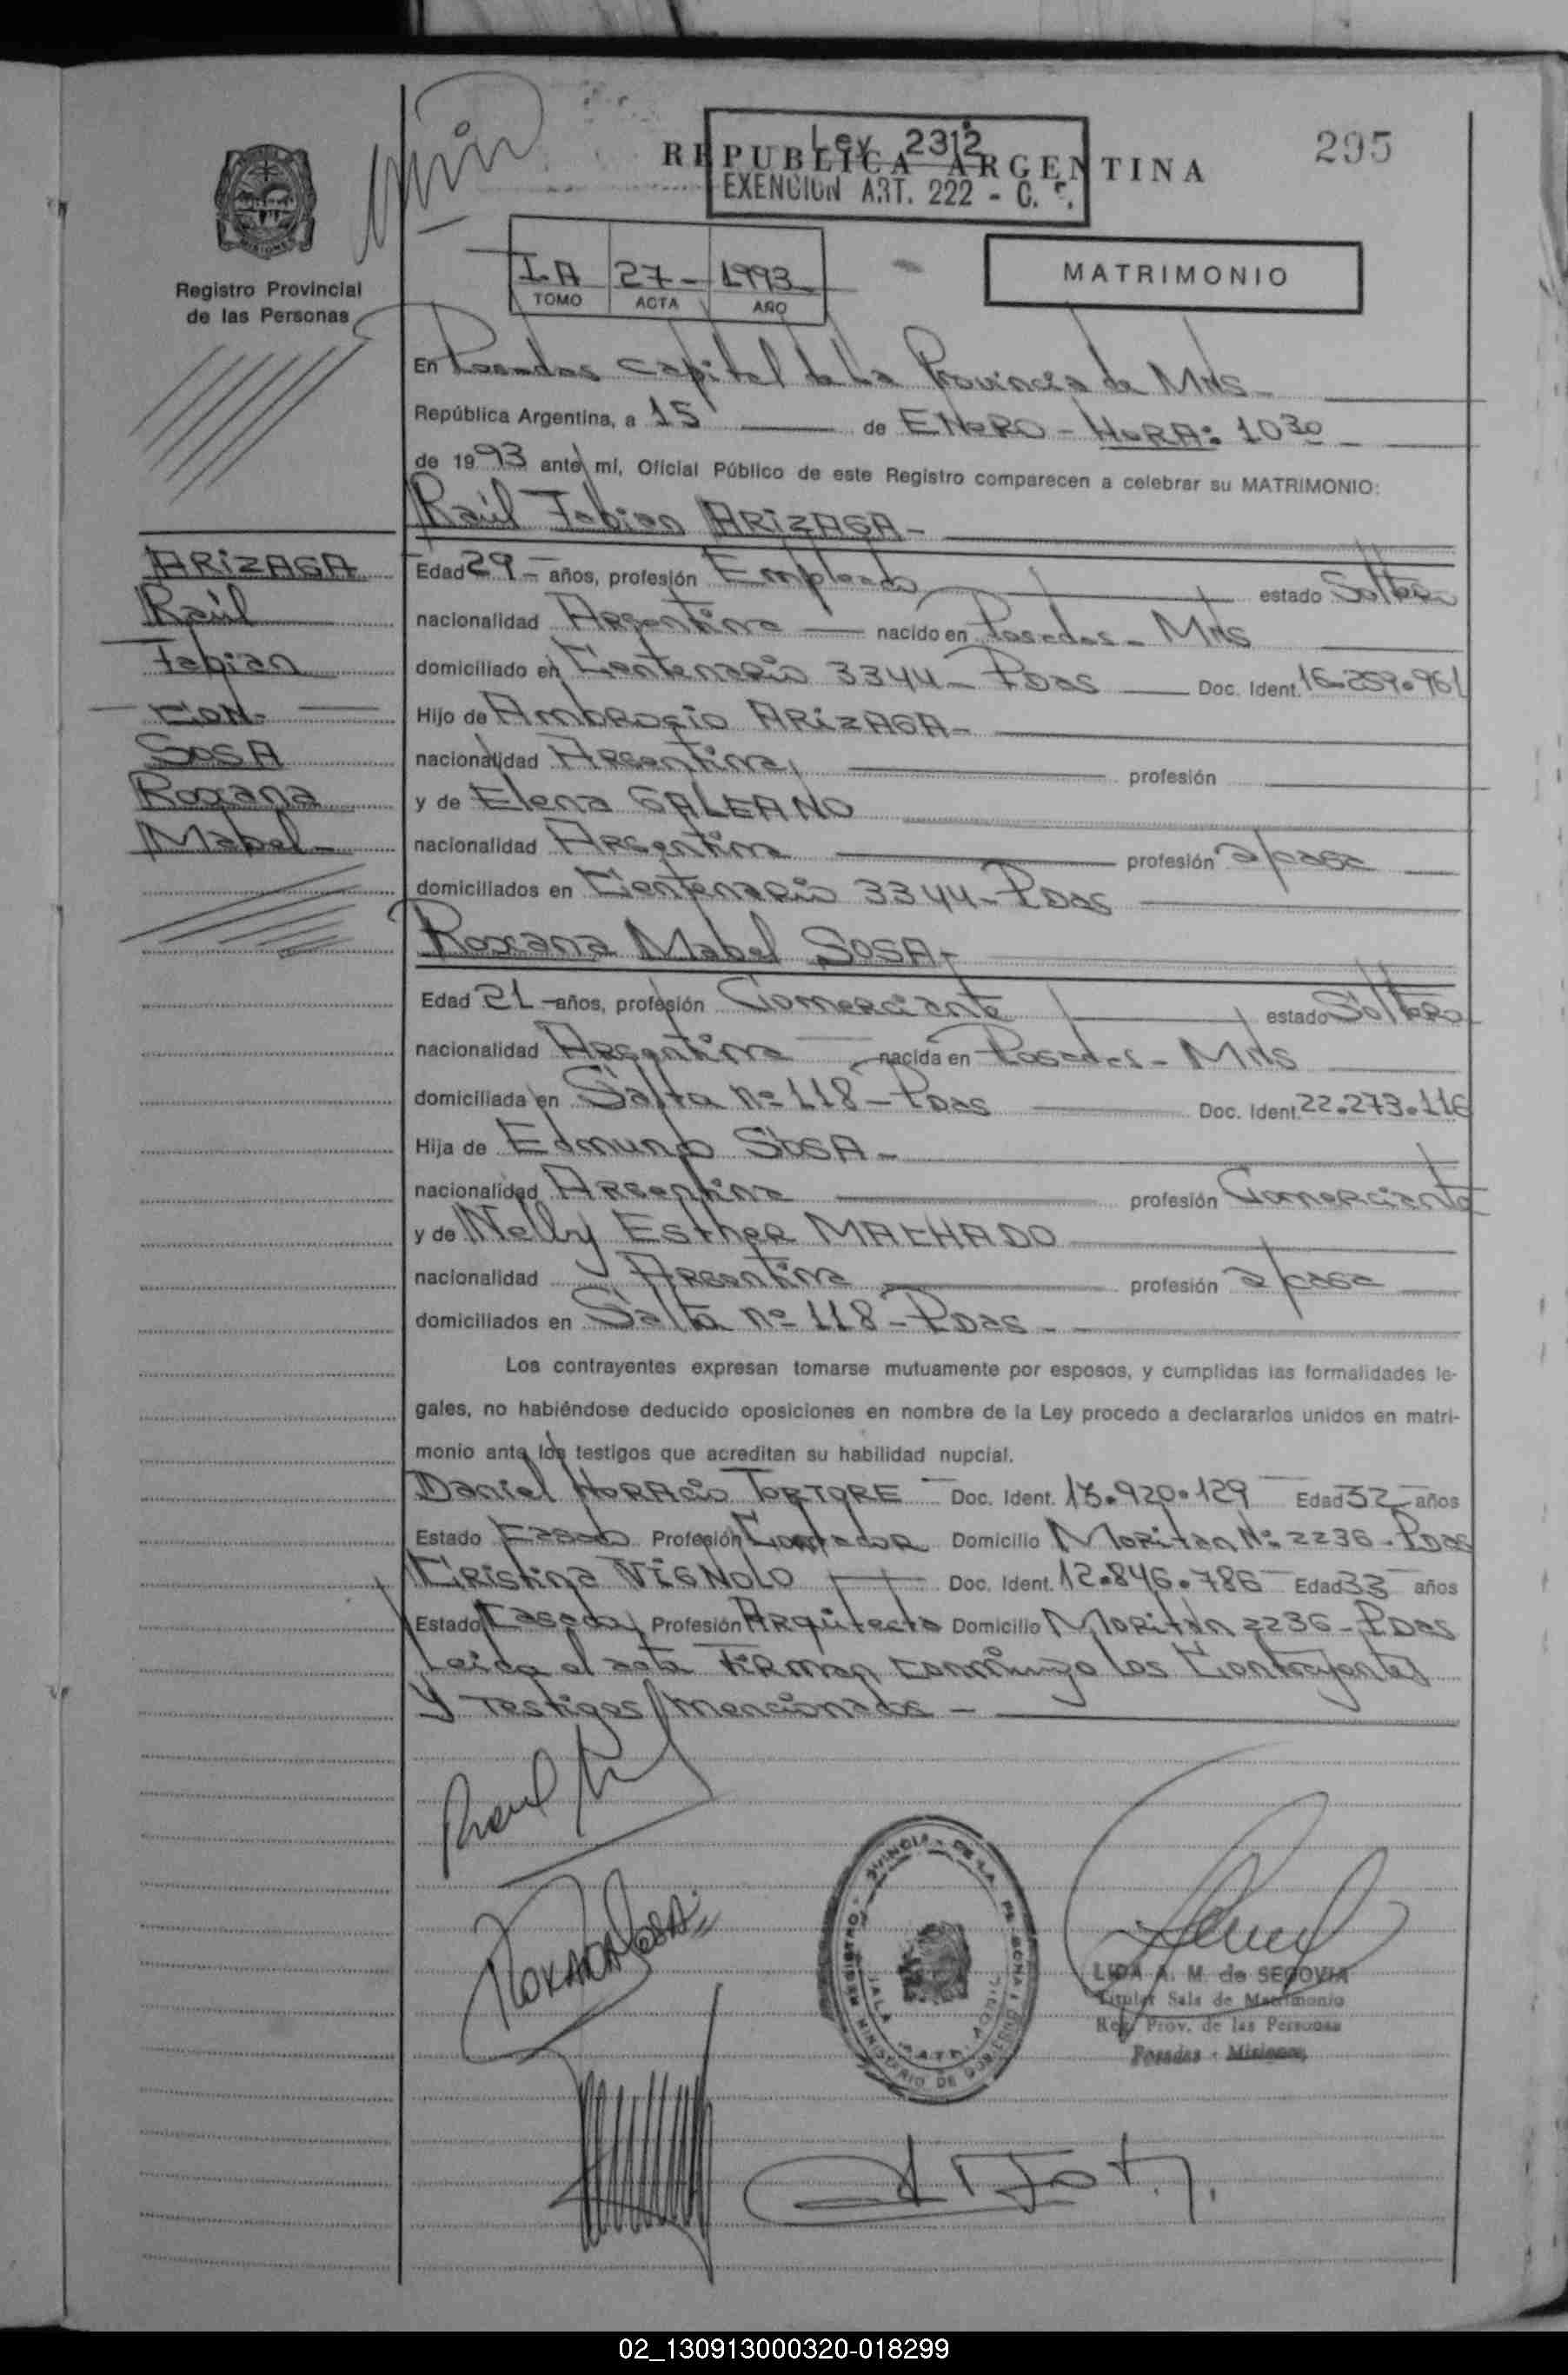 Ley 2312
REPUBLICA ARGENTINA
EXENCION ART. 222 - C. F.
295
I-A 27- 1993
TOMO ACTA AÑO
MATRIMONIO
Registro Provincial
de las Personas
En Posadas capital de la Provincia de Mnes
República Argentina, a 15 de ENERO - HORA: 10 30
de 1993 ante mí, Oficial Público de este Registro comparecen a celebrar su MATRIMONIO:
Raúl Fabian ARIZAGA-
ARIZAGA
Raúl
Fabian
- CON. -
SOSA
Roxana
Mabel-
Edad 29 - años, profesión Empleado estado Soltero
nacionalidad Argentina nacido en Posadas - Mnes
domiciliado en Centenario 3344 - Pdas Doc. Ident. 16.259.961
Hijo de Ambrosio ARIZAGA-
nacionalidad Argentina profesión
y de Elena GALEANO
nacionalidad Argentina profesión a/casa
domiciliados en Centenario 3344 - Pdas
Roxana Mabel SOSA-
Edad 21 - años, profesión Comerciante estado Soltera
nacionalidad Argentina nacida en Posadas - Mnes
domiciliada en Salta nº 118 - Pdas Doc. Ident. 22.273.116
Hija de Edmundo SOSA -
nacionalidad Argentina profesión Comerciante
y de Nelly Esther MACHADO
nacionalidad Argentina profesión a/casa
domiciliados en Salta nº 118 - Pdas -
Los contrayentes expresan tomarse mutuamente por esposos, y cumplidas las formalidades le-
gales, no habiéndose deducido oposiciones en nombre de la Ley procedo a declararlos unidos en matri-
monio ante los testigos que acreditan su habilidad nupcial.
Daniel Horacio TORTORE Doc. Ident. 13.920.129 Edad 32 años
Estado Casado Profesión Contador Domicilio Moritan Nº 2236 - Pdas
Cristina VIGNOLO Doc. Ident. 12.846.786 Edad 33 años
Estado Casada Profesión Arquitecta Domicilio Moritán 2236 - Pdas
Leida el acta Firman conmigo los Contrayentes
y Testigos mencionados -
Raul
ROXANA SOSA
LIDA A. M. de SEGOVIA
Titular Sala de Matrimonio
Reg. Prov. de las Personas
Posadas - Misiones
02_130913000320-018299